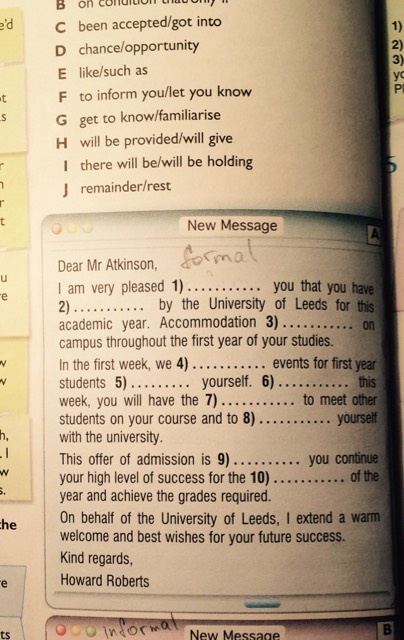 B on condition that/only if
C been accepted/got into
D chance/opportunity
E like/such as
F to inform you/let you know
G get to know/familiarise
H will be provided/will give
I there will be/will be holding
J remainder/rest
New Message
A
formal
Dear Mr Atkinson,
I am very pleased 1) ........... you that you have
2) ........... by the University of Leeds for this
academic year. Accommodation 3) ........... on
campus throughout the first year of your studies.
In the first week, we 4) ........... events for first year
students 5) ......... yourself. 6) ........... this
week, you will have the 7) ........... to meet other
students on your course and to 8) ........... yourself
with the university.
This offer of admission is 9) .......... you continue
your high level of success for the 10) ........... of the
year and achieve the grades required.
On behalf of the University of Leeds, I extend a warm
welcome and best wishes for your future success.
Kind regards,
Howard Roberts
informal
New Message
B
1)
2)
3)